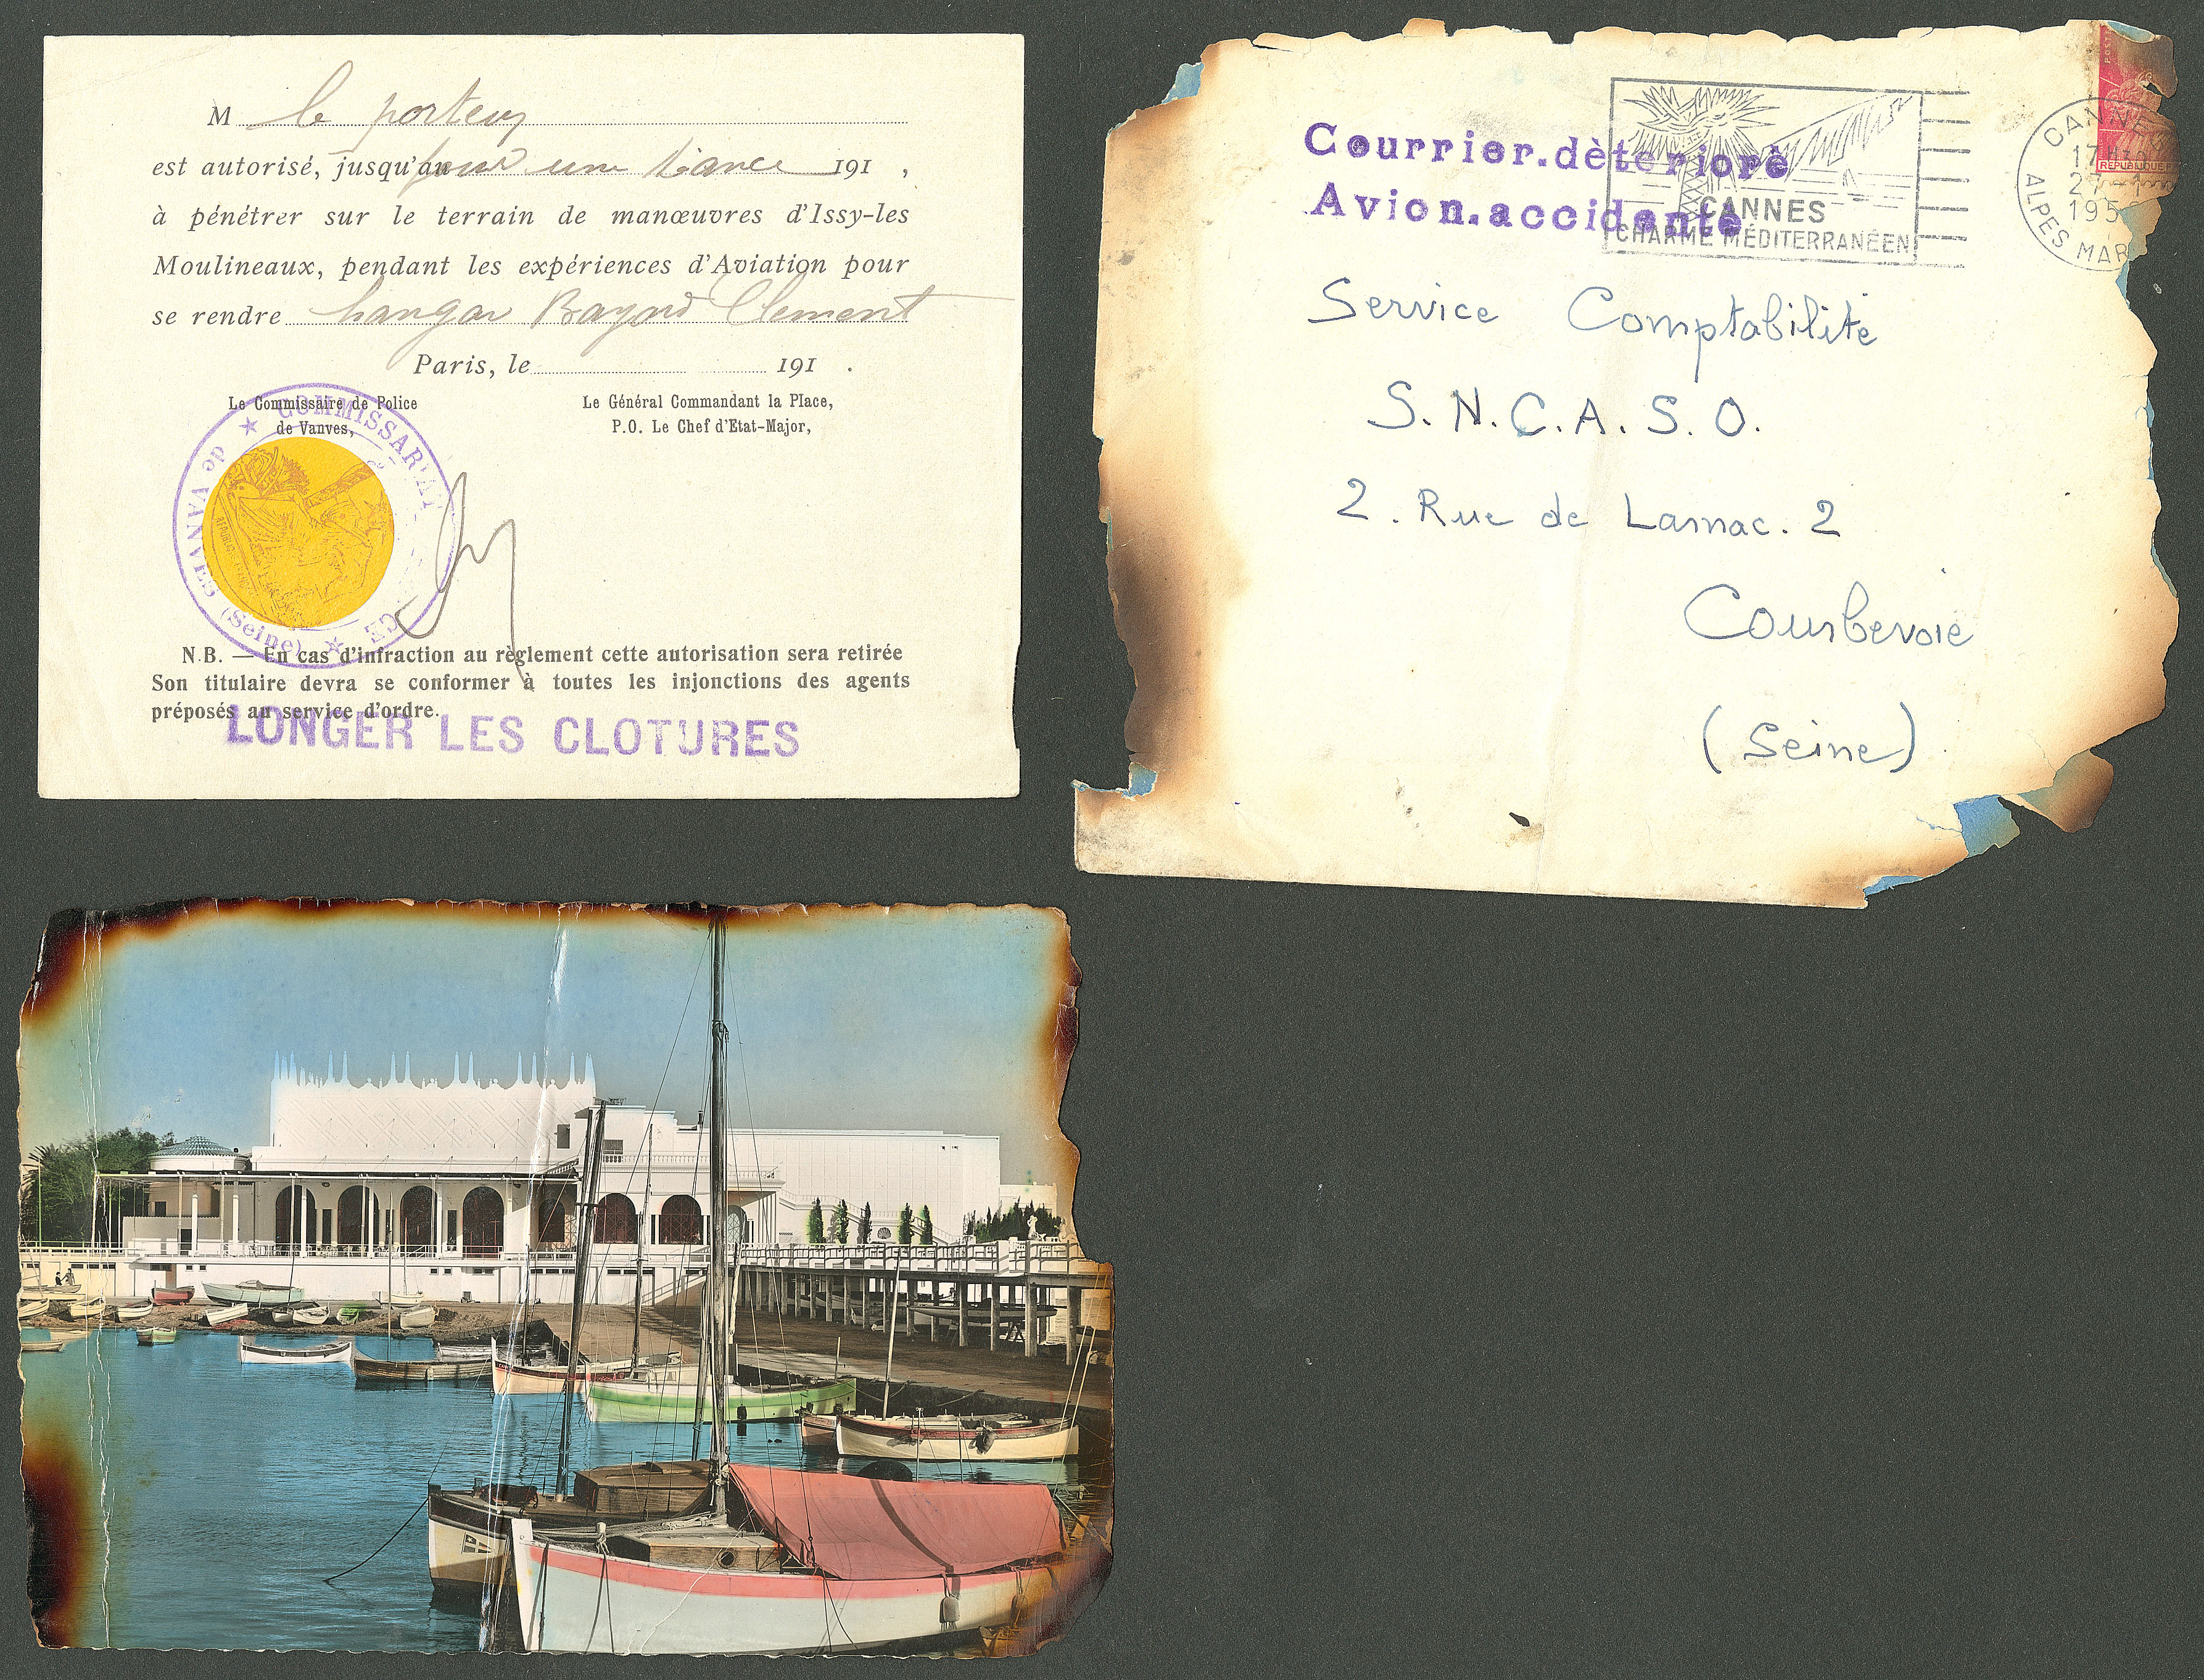 M le porteur
est autorisé, jusqu'au pour une séance 191 ,
à pénétrer sur le terrain de manœuvres d'Issy-les
Moulineaux, pendant les expériences d'Aviation pour
se rendre hangar Bayard Clement
Paris, le 191 .
Le Commissaire de Police
de Vanves,
Le Général Commandant la Place,
P.O. Le Chef d'Etat-Major,
COMMISSARIAT
de VANVES (Seine)
N.B. — En cas d'infraction au règlement cette autorisation sera retirée
Son titulaire devra se conformer à toutes les injonctions des agents
préposés au service d'ordre.
LONGER LES CLOTURES
Courrier.dèteriorè
Avion.accidentè
CANNES
CHARME MÉDITERRANÉEN
CANNE
17H
195
ALPES MAR
POST
REPUBLIQUE
Service Comptabilité
S.N.C.A.S.O.
2. Rue de Lamac. 2
Courbevoie
(Seine)